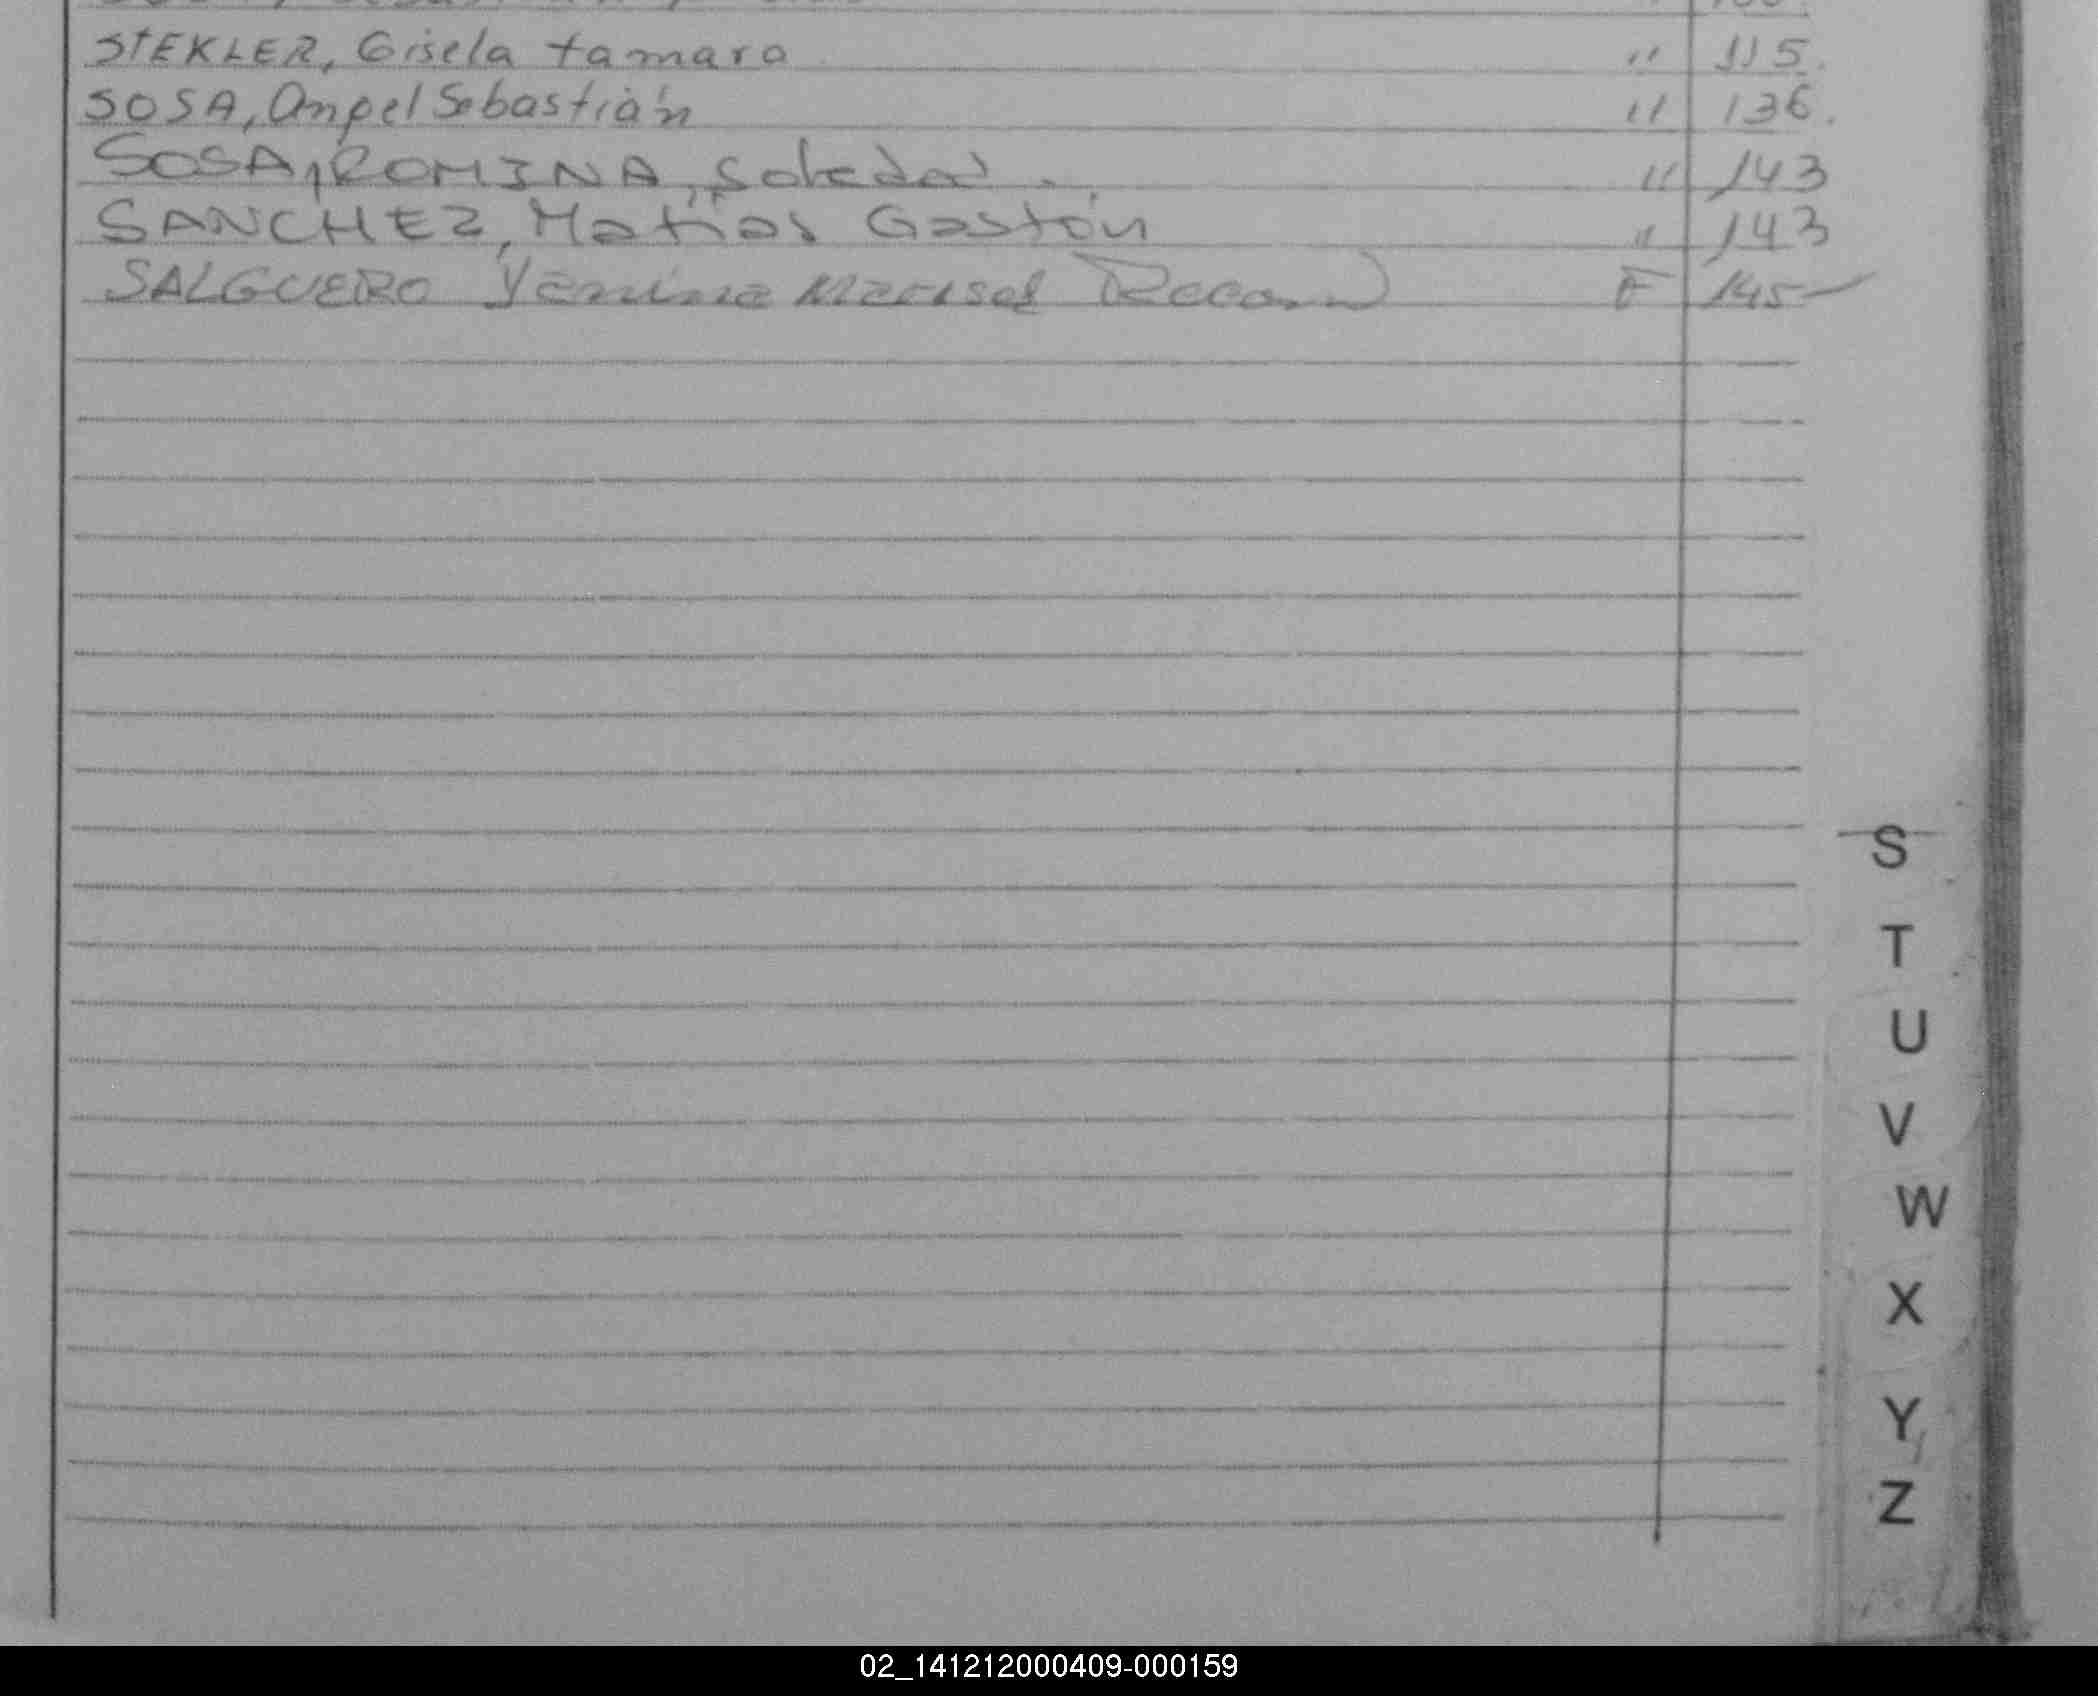 STEKLER, Gisela tamara " 115.
SOSA, Angel Sebastián " 136.
SOSA, ROMINA, Soledad. " 143
SANCHEZ, Matías Gastón " 143
SALGUERO Yanina Marisol F 145
S
T
U
V
W
X
Y
Z
02_141212000409-000159